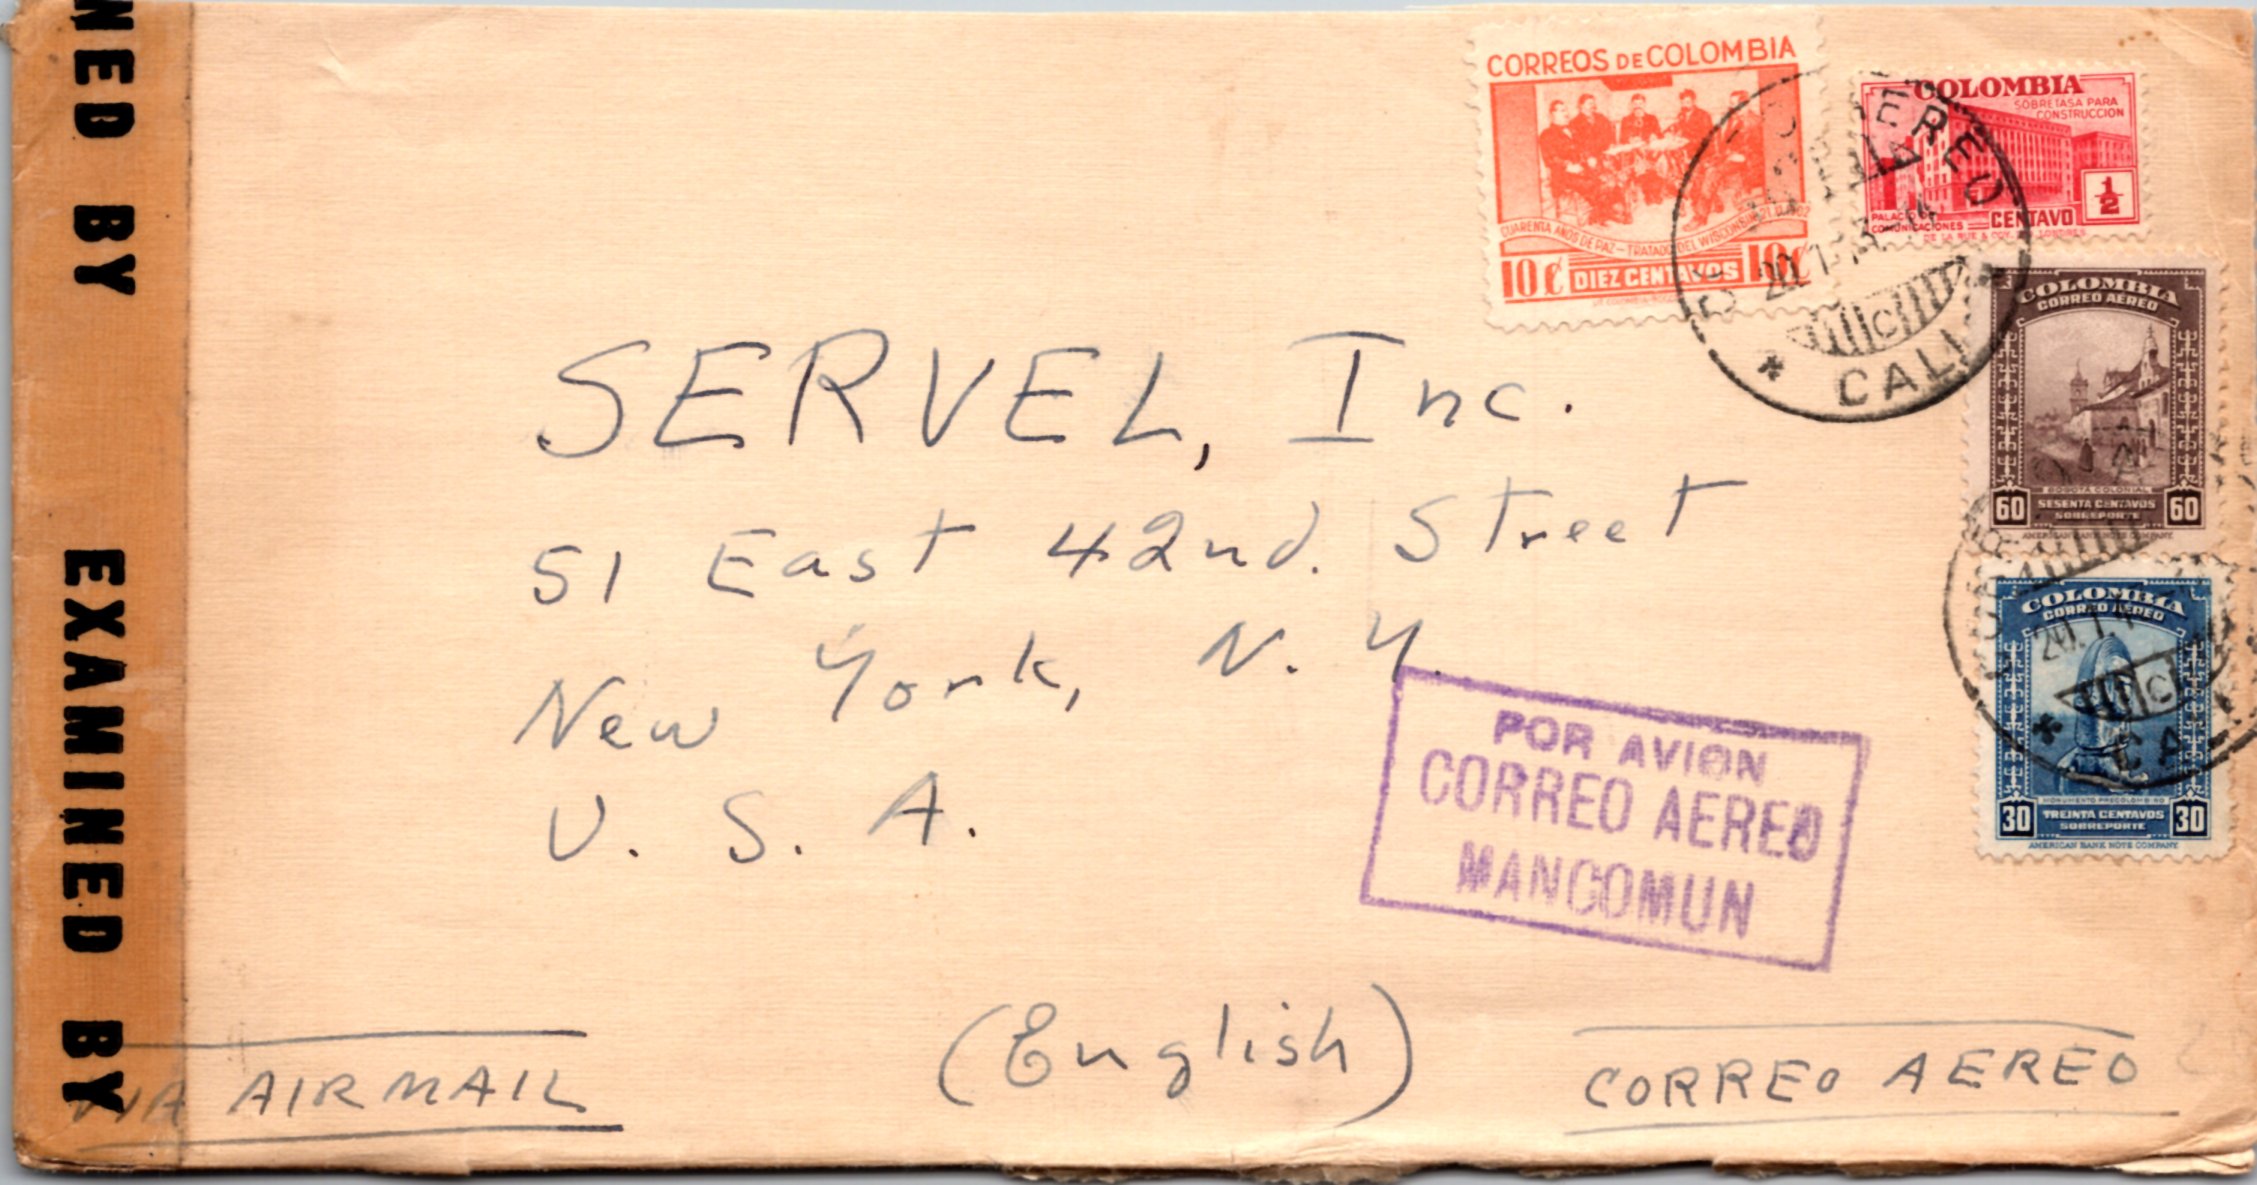 NED BY
EXAMINED BY
CORREOS DE COLOMBIA
CUARENTA AÑOS DE PAZ - TRATADO DEL WISCONSIN
10¢ DIEZ CENTAVOS 10¢
COLOMBIA
SOBRETASA PARA
CONSTRUCCION
PALACIO
COMUNICACIONES
CENTAVO
1/2
DE LA RUE & COY. LONDRES
AEREO
CALI
COLOMBIA
CORREO AEREO
BOGOTA COLONIAL
60 SESENTA CENTAVOS 60
SOBREPORTE
AMERICAN BANK NOTE COMPANY
COLOMBIA
CORREO AEREO
MONUMENTO PRECOLOMBINO
30 TREINTA CENTAVOS 30
SOBREPORTE
AMERICAN BANK NOTE COMPANY
SERVEL, Inc.
51 East 42nd. Street
New York, N. Y.
U. S. A.
POR AVION
CORREO AEREO
MANCOMUN
VIA AIRMAIL
(English)
CORREO AEREO